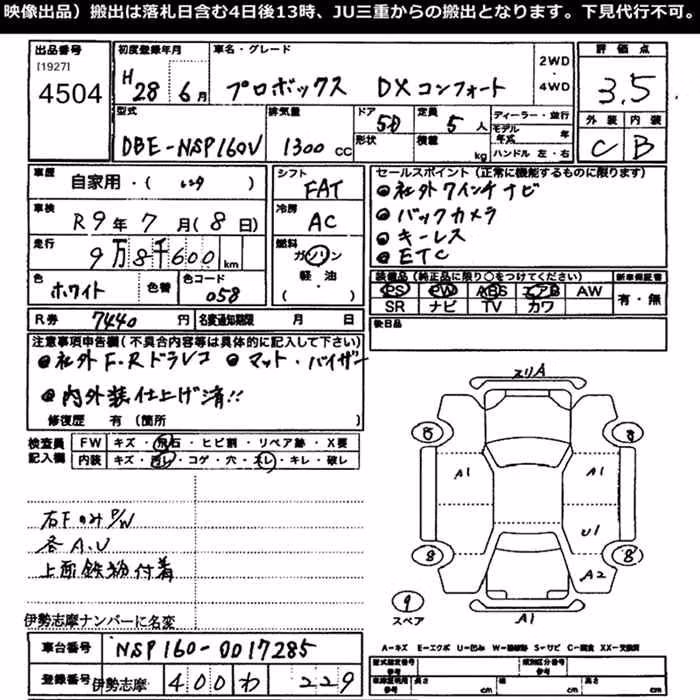 映像出品）搬出は落札日含む4日後13時、JU三重からの搬出となります。下見代行不可。
出品番号 [1927] 4504
初度登録年月 H28年 6月
車名・グレード プロボックス DXコンフォート
2WD・4WD
評価点 3.5
外装 C 内装 B
型式 DBE-NSP160V
排気量 1300 CC
ドア 5D 形状
定員 5人 積載 kg
ディーラー・並行
モデル年式 年
ハンドル 左・右
車歴 自家用・( )
車検 R9年7月(8日)
走行 9万8千600km
色 ホワイト 色替 色コード 058
シフト FAT
冷房 AC
燃料 ガソリン 軽・油 ( )
セールスポイント（正常に機能するものに限ります）
●社外7インチナビ
●バックカメラ
●キーレス
●ETC
装備品（純正品に限り○をつけてください）
PS PW ABS エアB AW
SR ナビ TV カワ
新車保証書 有・無
後日品
R券 7440円 名変通知期限 月 日
注意事項申告欄（不具合内容等は具体的に記入して下さい）
●社外F.Rドラレコ ●マット・バイザー
●内外装仕上げ済!!
修復歴 有（箇所 ）
検査員記入欄
FW キズ・飛石・ヒビ割・リペア跡・X要
内装 キズ・汚レ・コゲ・穴・スレ・キレ・破レ
右下のみP/W
各A.U
上面鉄粉付着
伊勢志摩ナンバーに名変
車台番号 NSP160-0017285
登録番号 伊勢志摩 400 わ 229
スリA
8 8
A1 A1
U1
8 8
A2
9 スペア
A1
A－キズ E－エクボ U－凹み W－補修跡 S－サビ C－腐食 XX－交換済
型式指定番号 参考
類別区分番号
車体証明用参考 長さ cm 幅 cm 高さ cm